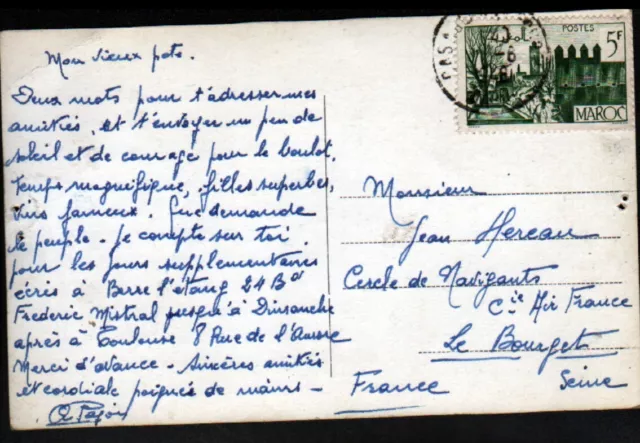 Mon vieux pote.
Deux mots pour t'adresser mes
amitiés, et t'envoyer un peu de
soleil et de courage pour le boulot.
temps magnifique, filles superbes,
vins fameux. Que demande
le peuple. Je compte sur toi
pour les jours supplémentaires
écris à Berre l'étang 24 Bd
Frederic Mistral jusqu'à Dimanche
après à Toulouse 8 Rue de l'Aurore
Merci d'avance. Sincères amitiés
et cordiale poignés de mains -
POSTES
5F
MAROC
Monsieur
Jean Hereau
Cercle de Navigants
Cie Air France
Le Bourget
France Seine